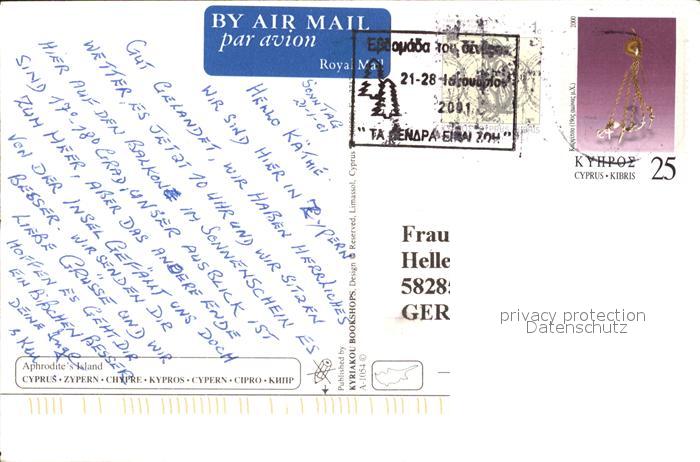 BY AIR MAIL
par avion
Royal Mail
SONNTAG
21.1.01
HELLO KÄTHIE.
WIR SIND HIER IN ZYPERN
GUT GELANDET WIR HABEN HERRLICHES
WETTER, ES JETZT 10 UHR UND WIR SITZEN
HIER AUF DEN BALKON IM SONNENSCHEIN ES
SIND 170-180 GRAD, UNSER AUSBLICK IST
ZUM MEER, ABER DAS ANDERE ENDE
VON DER INSEL GEFÄHLT UNS DOCH
BESSER. WIR SENDEN DIR
LIEBE GRÜSSE UND WIR
HOFFEN ES GEHT DIR
EIN BIßCHEN BESSER
DEINE
Aphrodite's Island
CYPRUS • ZYPERN • CHYPRE • KYPROS • CYPERN • CIPRO • КИПР
Published by
KYRIAKOU BOOKSHOPS, Design © Reserved, Limassol, Cyprus
A-1054 ©
Εβδομάδα του δένδρου
21-28 Ιανουαρίου
2001
"ΤΑ ΔΕΝΔΡΑ ΕΙΝΑΙ ΖΩΗ"
2000
ΚΥΠΡΟΣ
CYPRUS • KIBRIS
25
Frau
Helle
5828
GER
privacy protection
Datenschutz